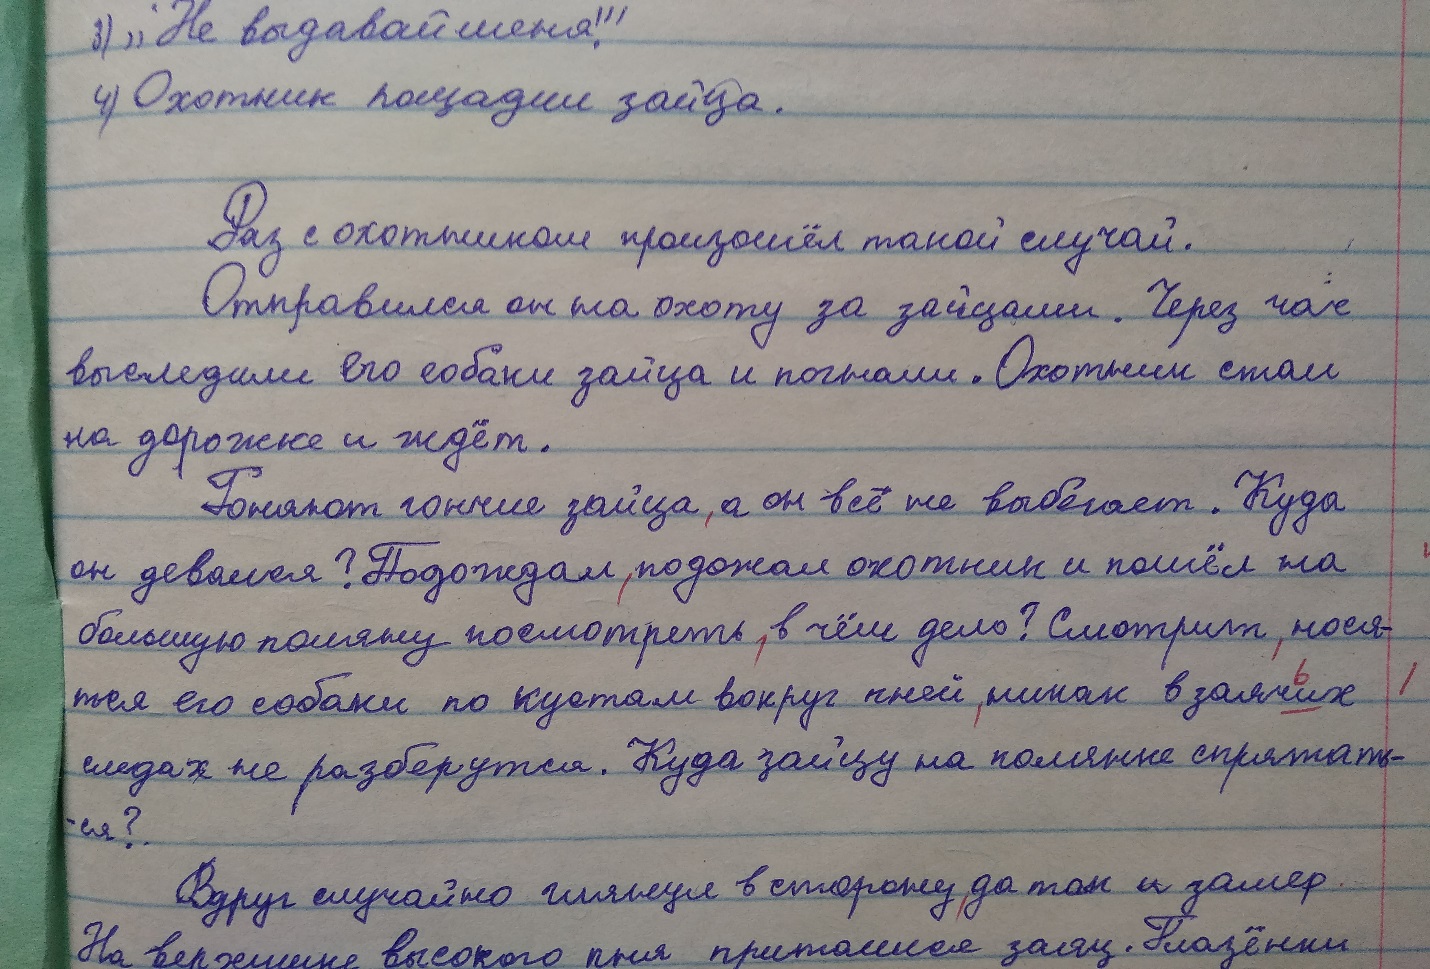 3) „Не выдавай меня!!!"
4) Охотник пощадил зайца.
Раз с охотником произошёл такой случай.
Отправился он на охоту за зайцами. Через час
выследили его собаки зайца и погнали. Охотник стал
на дорожке и ждёт.
Гоняют гончие зайца, а он всё не выбегает. Куда
он девался? Подождал, подождал охотник и пошёл на
большую поляну посмотреть, в чём дело? Смотрит, нося-
тся его собаки по кустам вокруг пней, никак в заячьих
следах не разберутся. Куда зайцу на полянке спрятать-
-ся?
Вдруг случайно глянул в сторону, да так и замер.
На вершине высокого пня притаился заяц. Глазёнки